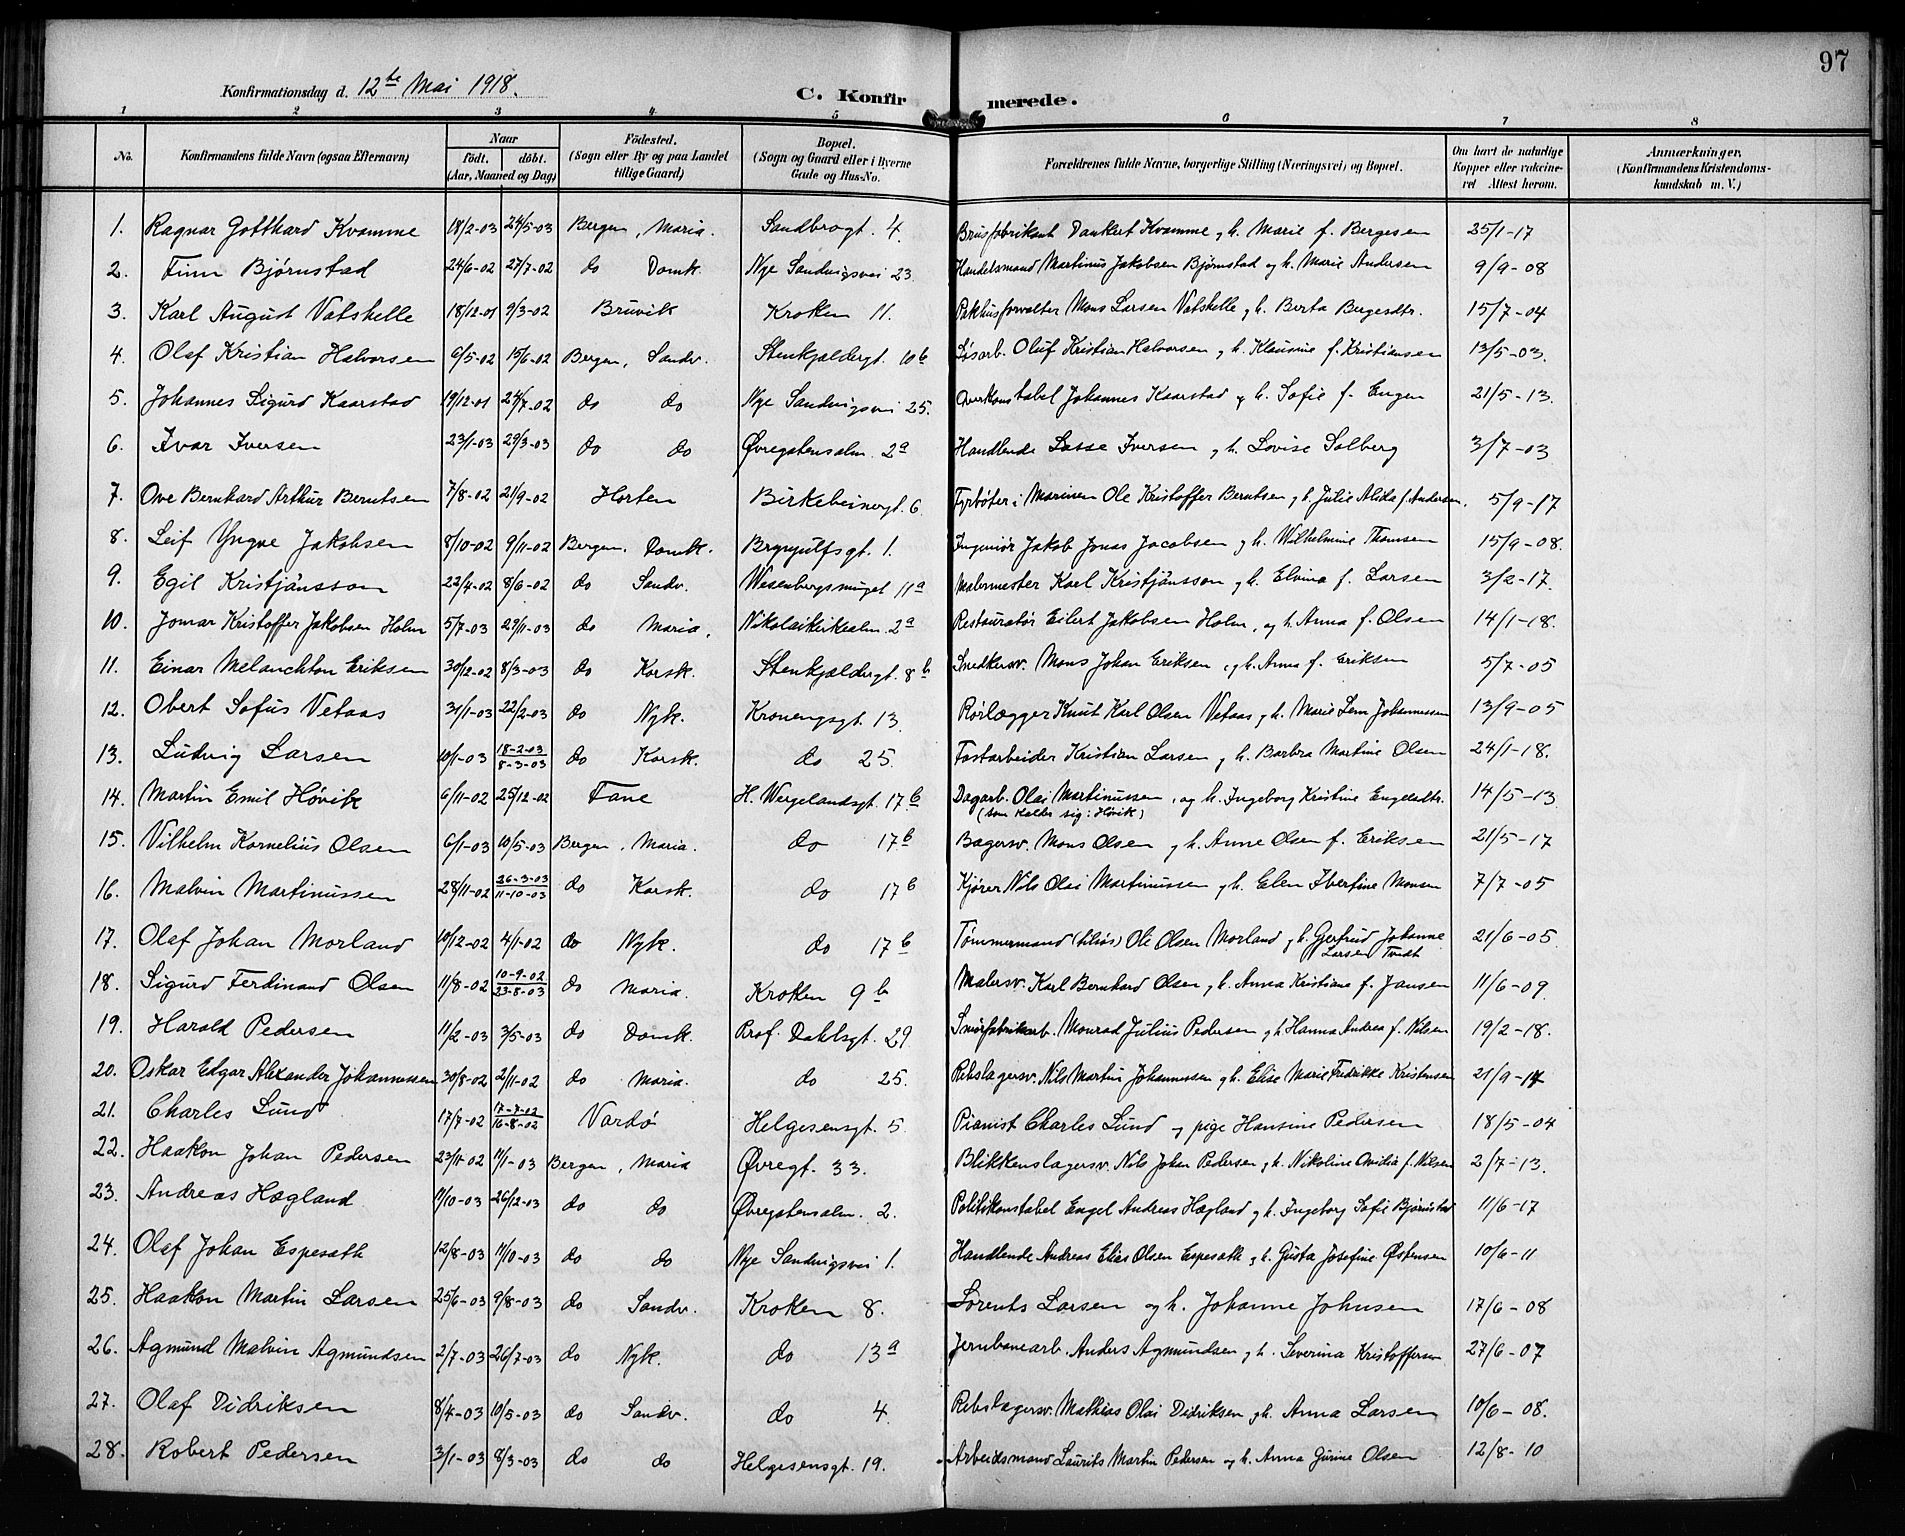 97
Konfirmationsdag d. 12te Mai 1918.
C. Konfirmerede.
1 2 3 4 5 6 7 8
No. Konfirmandens fulde Navn (ogsaa Efternavn) Naar födt. döbt. (Aar, Maaned og Dag) Födested. (Sogn eller By og paa Landet tillige Gaard) Bopæl. (Sogn og Gaard eller i Byerne Gade og Hus-No. Forældrenes fulde Navne, borgerlige Stilling (Næringsvei) og Bopæl. Om havt de naturlige Kopper eller vakcineret Attest herom. Anmærkninger, (Konfirmandens Kristendomskundskab m. V.)
1. Ragnar Gotthard Kvamme 18/2-03 24/5-03 Bergen, Maria. Sandbrogt. 4. Brusfabrikant Dankert Kvamme og h. Marie f. Bergesen 25/1-17
2. Finn Bjørnstad 24/6-02 27/7-02 do Domk. Nye Sandvigsvei 23. Handelsmand Martinus Jakobsen Bjørnstad og h. Marie Andersen 9/9-08
3. Karl August Vatshelle 18/12-01 9/3-02 Bruvik Kroken 11. Pakhusforvalter Mons Larsen Vatshelle og h. Berta Bergesdtr. 15/7-04
4. Olaf Kristian Halvorsen 6/5-02 15/6-02 Bergen, Sandv. Stenkjeldergt. 10b Løsarb. Oluf Kristian Halvorsen og h. Klausine f. Kristiansen 13/5-03.
5. Johannes Sigurd Kaarstad 19/12-01 24/7-02 do do Nye Sandvigsvei 25. Overkonstabel Johannes Kaarstad og h. Sofie f. Engen 21/5-13.
6. Ivar Iversen 23/1-03 29/3-03 do do Øvregatensalm. 2a Handlende Lasse Iversen og h. Lovise Solberg 3/7-03
7. Ove Bernhard Arthur Berntsen 7/8-02 21/9-02 Horten Birkebeinergt. 6. Fyrbøter i Marinen Ole Kristoffer Berntsen og h. Julie Alida f. Andersen. 5/9-17
8. Leif Yngve Jakobsen 8/10-02 9/11-02 Bergen. Domk. Brynjulfsgt. 1. Ingeniør Jakob Jonas Jacobsen og h. Wilhelmine Thomsen 15/9-08.
9. Egil Kristjánsson 22/4-02 8/6-02 do Sandv. Wesenbergsmuget 11a Malermester Karl Kristjánsson og h. Elvina f. Larsen 3/2-17.
10. Jomar Kristoffer Jakobsen Holm 5/7-03 29/11-03 do Maria. Nikolaikirkealm. 2a Restauratør Eilert Jakobsen Holm, og h. Anna f. Olsen 14/1-18.
11. Einar Melanchton Eriksen 30/12-02 8/3-03 do Korsk. Stenkjeldergt. 8b Snedkersv. Mons Johan Eriksen, og h. Anna f. Eriksen 5/7-05
12. Obert Sofus Vetaas 31/1-03 22/2-03 do Nyk. Kronengsgt. 13. Rørlægger Knut Karl Olsen Vetaas og h. Marie Lem Johannessen 13/9-05
13. Ludvig Larsen 10/1-03 18-2-03 8-3-03 do Korsk. do 25. Fastarbeider Kristian Larsen og h. Barbra Martine Olsen 24/1-18.
14. Martin Emil Høvik 6/11-02 25/12-02 Fane H. Wergelandsgt. 17b Dagarb. Olai Martinussen, og h. Ingeborg Kristine Engelsdtr. 14/5-13
(som kalder sig: Høvik)
15. Vilhelm Kornelius Olsen 6/1-03 10/5-03 Bergen, Maria. do 17b Bagersv. Mons Olsen og h. Anne Olsen f. Eriksen 21/5-17
16. Malvin Martinussen 28/11-02 26-3-03 11-10-03 do Korsk. do 17b Kjører Nils Olai Martinussen og h. Elen Ibertine Monsen 7/7-05
17. Olaf Johan Morland 10/12-02 4/1-02 do Nyk. do 17b Tømmermand Ole Olsen Morland og h. Gjertrud Johanne Larsen Tvedt 21/6-05.
18. Sigurd Ferdinand Olsen 11/8-02 10-9-02 23-8-03 do Maria. Kroken 9b Malersv. Karl Bernhard Olsen og h. Anna Kristiane f. Jansen 11/6-09.
19. Harald Pedersen 11/2-03 3/5-03 do Domk. Prof. Dahlsgt. 29. Smørfabrikarb. Monrad Julius Pedersen og h Hanna Andrea f. Nilsen 19/2-18.
20. Oskar Edgar Alexander Johannessen 30/8-02 2/11-02 do Maria. do 25. Rebslagersv. Nils Martin Johannessen og h. Elise Marie Fredrikke Kristensen 21/9-17
21. Charles Lund 17/7-02 17-7-02 16-8-02 Vardø Helgesensgt. 5. Pianist Charles Lund og pige Hansine Pedersen 18/5-04
22. Haakon Johan Pedersen 23/11-02 11/1-03 Bergen, Maria Øvregt. 33. Blikkenslagersv. Nils Johan Pedersen og h. Nikoline Ovidia f. Nilsen 2/7-13.
23. Andreas Hægland 11/10-03 26/12-03 do do Øvregatensalm. 2. Politikonstabel Engel Andreas Hægland og h. Ingeborg Sofie Bjørnstad 11/6-17
24. Olaf Johan Espesæth 12/8-03 11/10-03 do do Nye Sandvigsvei 1. Handlende Andreas Elias Olsen Espesæth og h. Gusta Josefine Østensen 10/6-11
25. Haakon Martin Larsen 25/6-03 9/8-03 do Sandv. Kroken 8. Lorents Larsen og h. Johanne Johnsen 17/6-08
26. Agmund Malvin Agmundsen 2/7-03 26/7-03 do Nyk. do 13a Jernbanearb. Anders Agmundsen og h. Severina Kristoffersen 27/6-07
27. Olaf Didriksen 8/4-03 10/5-03 do Sandv. do 4. Rebslagersv. Mathias Olai Didriksen og h. Anna Larsen 10/6-08.
28. Robert Pedersen 3/1-03 8/3-03 do do Helgesensgt. 19. Arbeidsmand Laurits Martin Pedersen og h. Anna Gurine Olsen 12/8-10